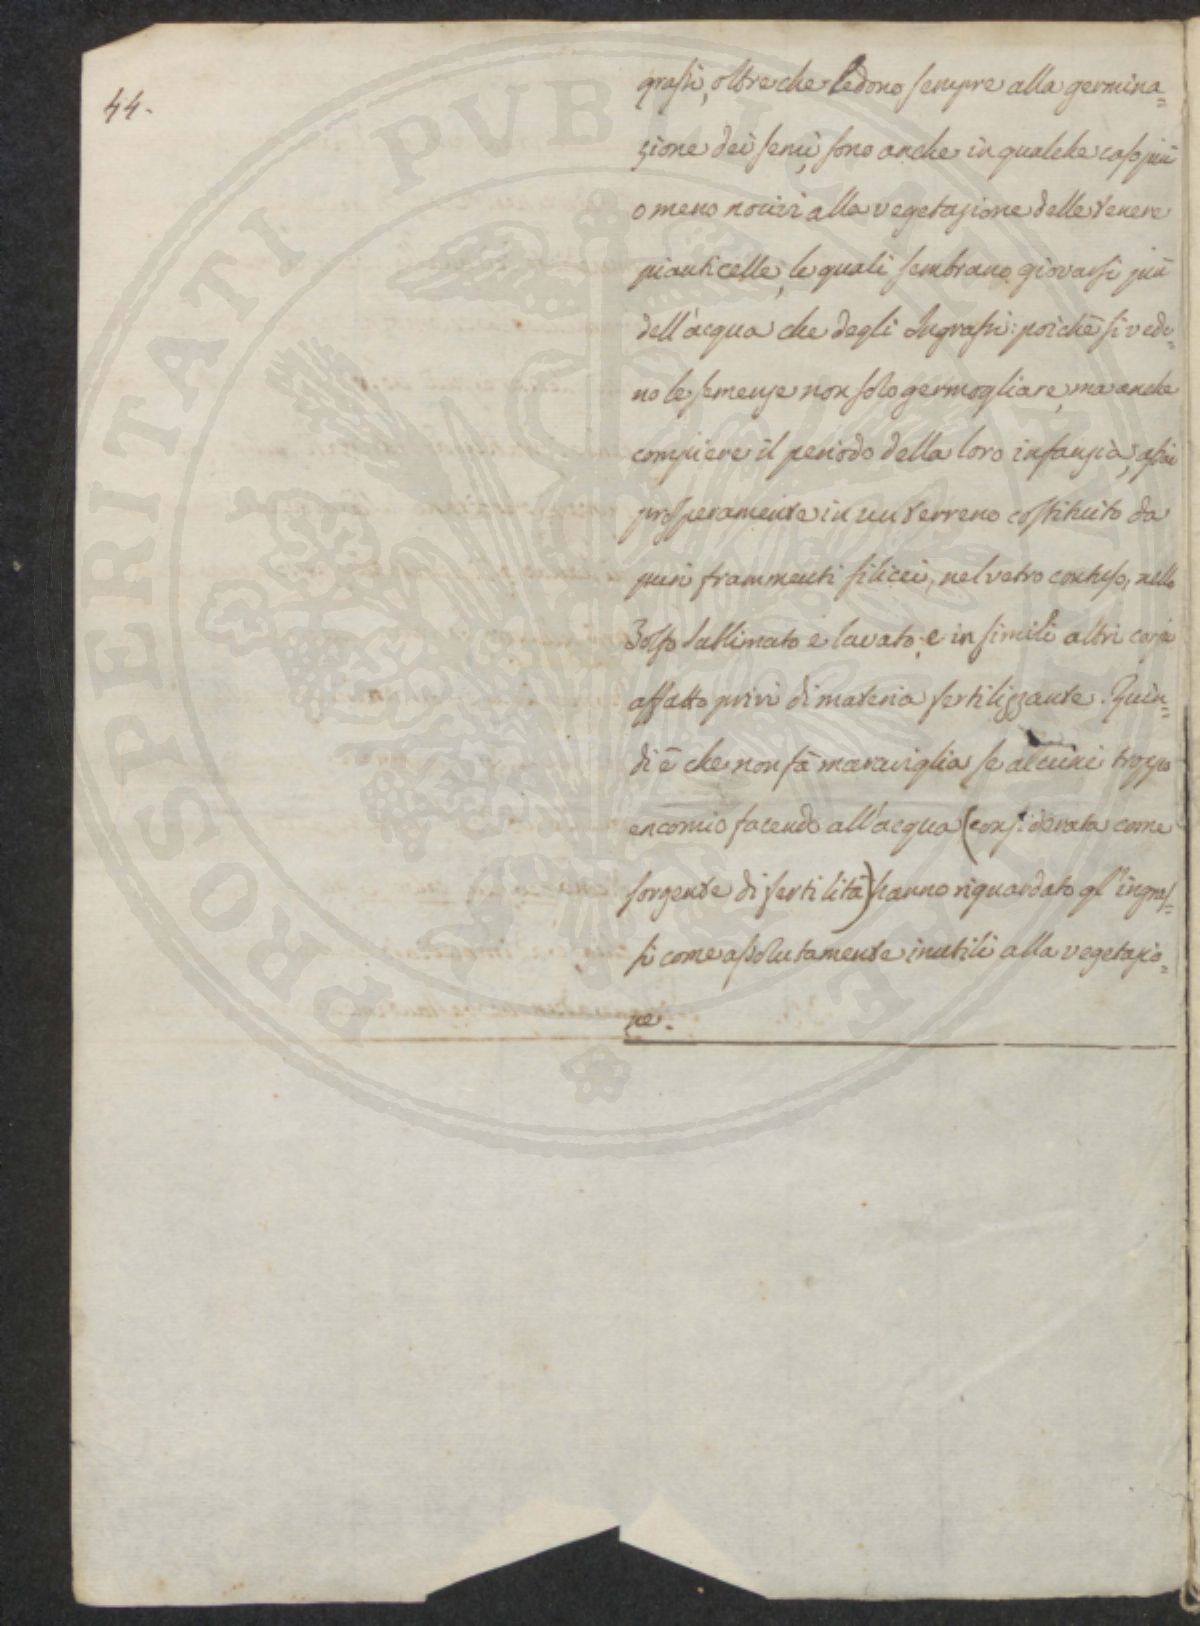 44.
grassi, oltre che ledono sempre alla germina=
zione dei semi, sono anche in qualche caso più
o meno nocivi alla vegetazione delle tenere
pianticelle, le quali sembrano giovarsi più
dell'acqua che degli Ingrassi: poichè si vedo=
no le semenze non solo germogliare, ma anche
compiere il periodo della loro infanzia, assai
prosperamente in un terreno costituito da
puri frammenti silicei, nel vetro contuso, nello
Zolfo sublimato e lavato, e in simili altri corpi
affatto privi di materia fertilizzante. Quin=
di è che non fà maraviglia se alcuni troppo
encomio facendo all'acqua (considerata come
sorgente di fertilità) hanno riguardato gl'ingras=
si come assolutamente inutili alla vegetazio=
ne.
PROSPERITATI PUBLICAE